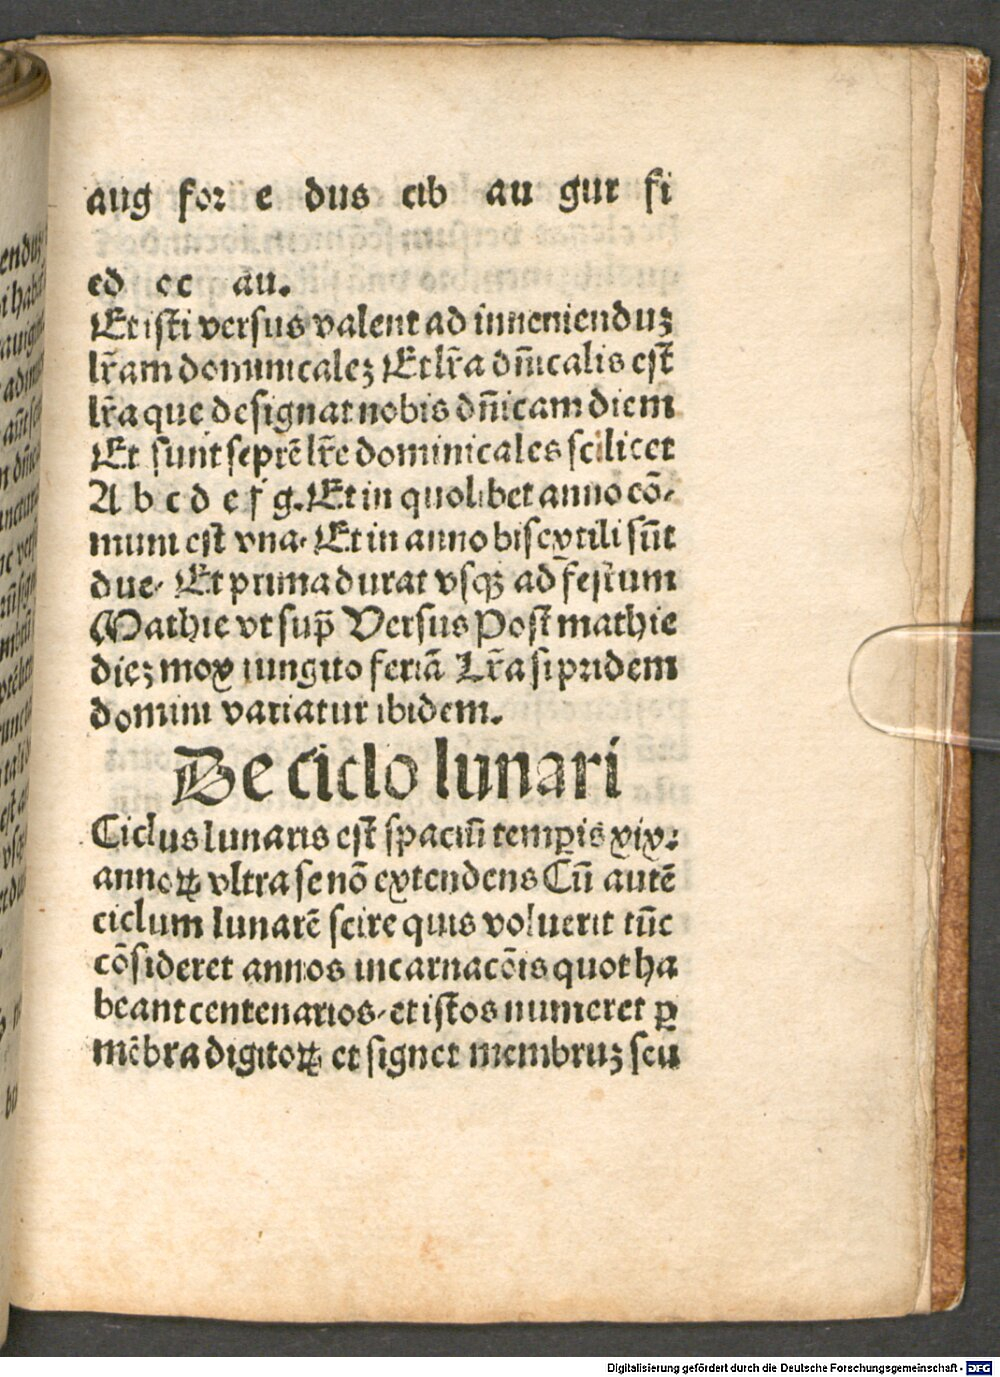 aug for e dus cib au gur fi
ed cc au.
Et isti versus valent ad inuenienduꝫ
lr̄am dominicaleꝫ Et lr̄a dn̄icalis est
lr̄a que designat nobis dn̄icam diem
Et sunt septē lr̄e dominicales scilicet
A b c d e f g. Et in quolibet anno cō-
muni est vna. Et in anno bisextili sūt
due. Et prima durat vsqꝫ ad festum
Mathie vt sup̄ Versus Post mathie
dieꝫ mox iungito feriā Lr̄a si pridem
domini variatur ibidem.
De ciclo lunari
Ciclus lunaris est spaciū temꝑis xix.
annoꝝ vltra se nō extendens Cū autē
ciclum lunarē scire quis voluerit tūc
cōsideret annos incarnacōis quot ha
beant centenarios. et istos numeret ꝑ
mēbra digitoꝝ et signet membruꝫ seu
Digitalisierung gefördert durch die Deutsche Forschungsgemeinschaft - DFG